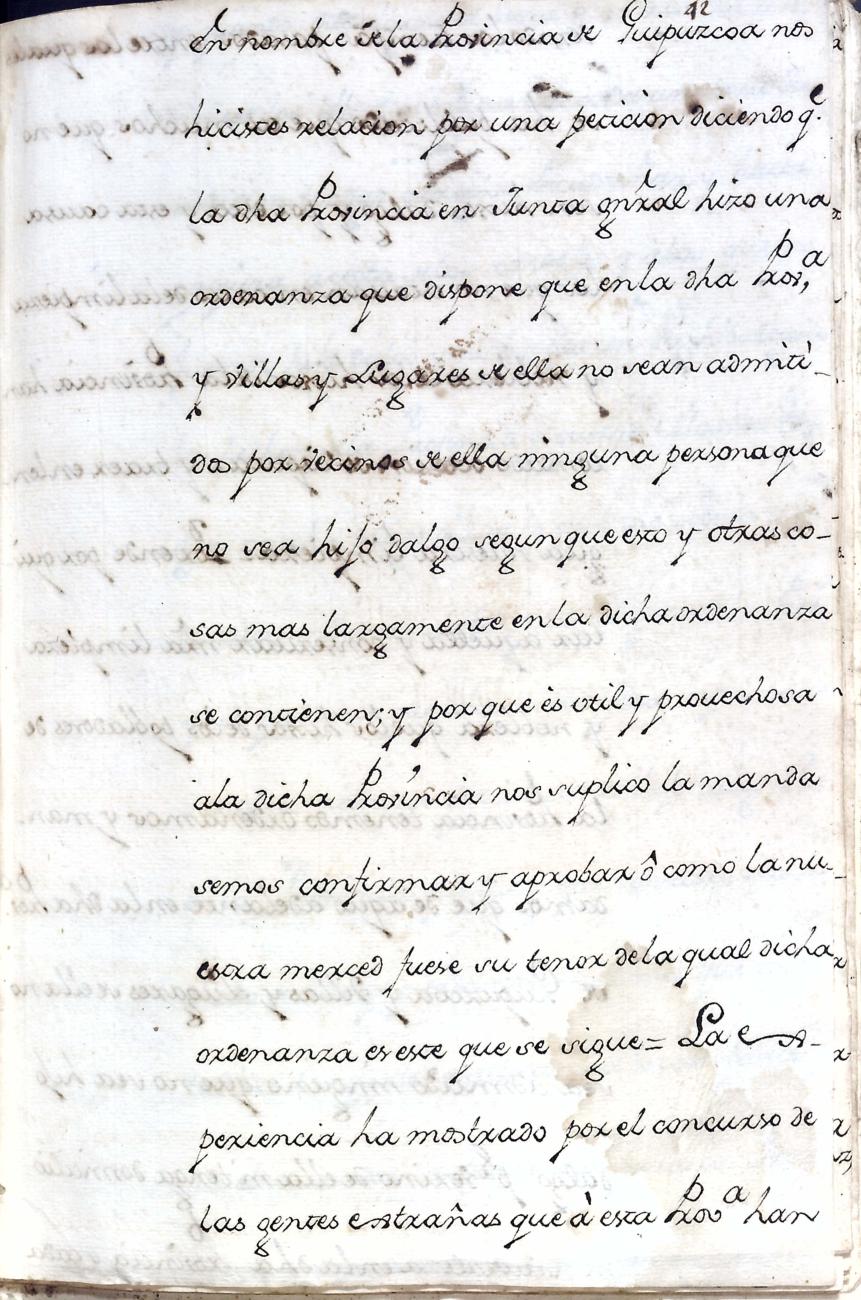 42
En nombre de la Provincia de Guipuzcoa nos
hicistes relacion por una peticion diciendo q.e
la dha Provincia en Junta gnral hizo una
ordenanza que dispone que en la dha Prov,a
y villas y Lugares de ella no sean admiti_
dos por vecinos de ella ninguna persona que
no sea hijo dalgo segun que esto y otras co_
sas mas largamente en la dicha ordenanza
se contienen; y por que ès util y provechosa
ala dicha Provincia nos suplico la manda
semos confirmar y aprobar ô como la nu_
estra merced fuese su tenor de la qual dicha
ordenanza es este que se sigue = La ex_
periencia ha mostrado por el concurso de
las gentes extrañas que à esta Prov.a han